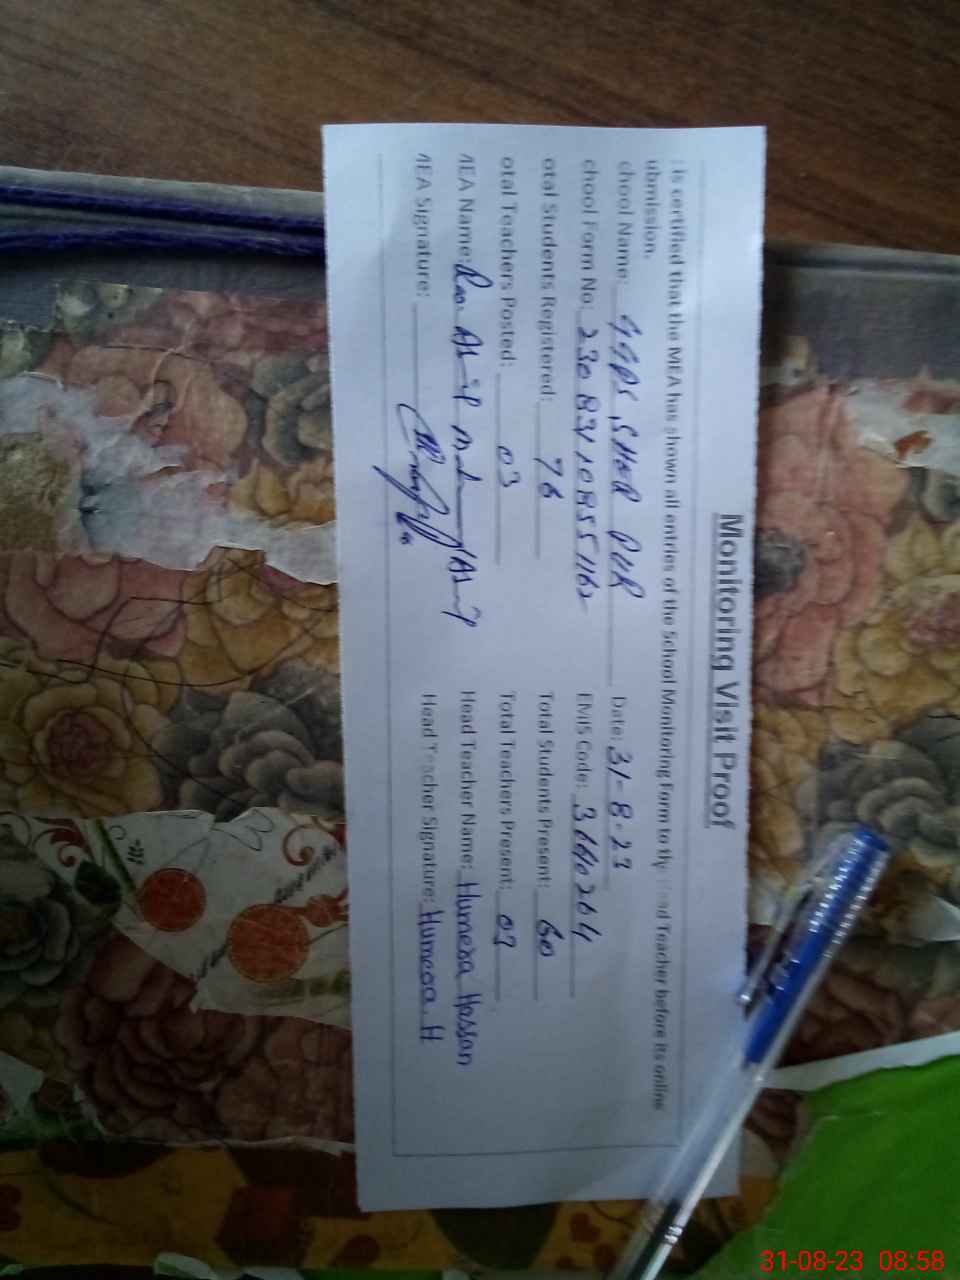 Monitoring Visit Proof
is certified that the MEA has shown all entries of the School Monitoring Form to the Head Teacher before its online
ubmission.
chool Name: GGPS, SHER PUR Date: 31-8-23
chool Form No: EMIS Code:
otal Students Registered: 76 Total Students Present: 60
otal Teachers Posted: 03 Total Teachers Present: 03
MEA Name: Head Teacher Name: Humera Hassan
MEA Signature: Head Teacher Signature: Humera. H
31-08-23 08:58